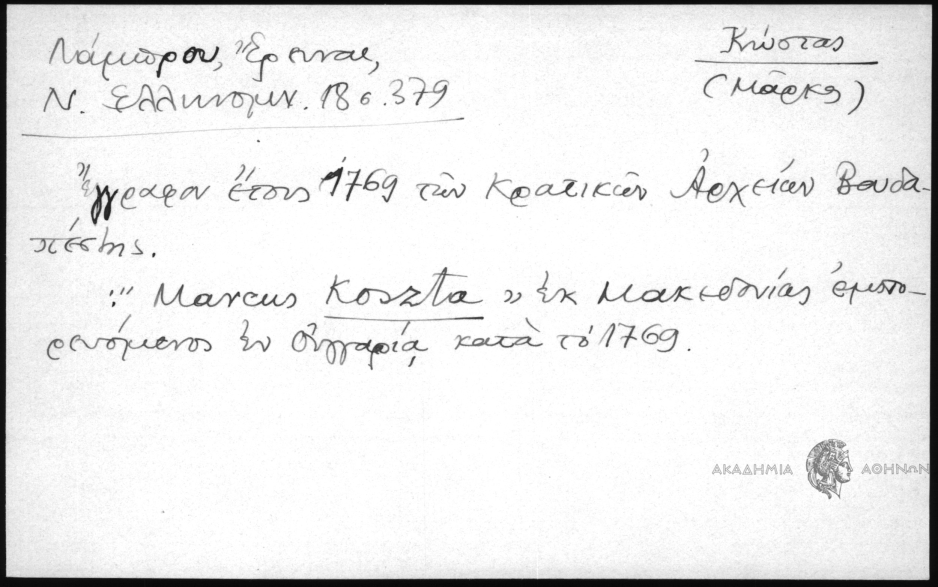 Λάμπρου, Ἔρευναι,
Ν. Ἑλληνομν. 18 σ. 379
Κώστας
(Μάρκος)
Ἔγγραφον ἔτους 1769 τῶν Κρατικῶν Ἀρχείων Βουδα-
πέστης.
:" Marcus Koszta " ἐκ Μακεδονίας ἐμπο-
ρευόμενος ἐν Οὑγγαρίᾳ κατὰ τὸ 1769.
ΑΚΑΔΗΜΙΑ ΑΘΗΝΩΝ